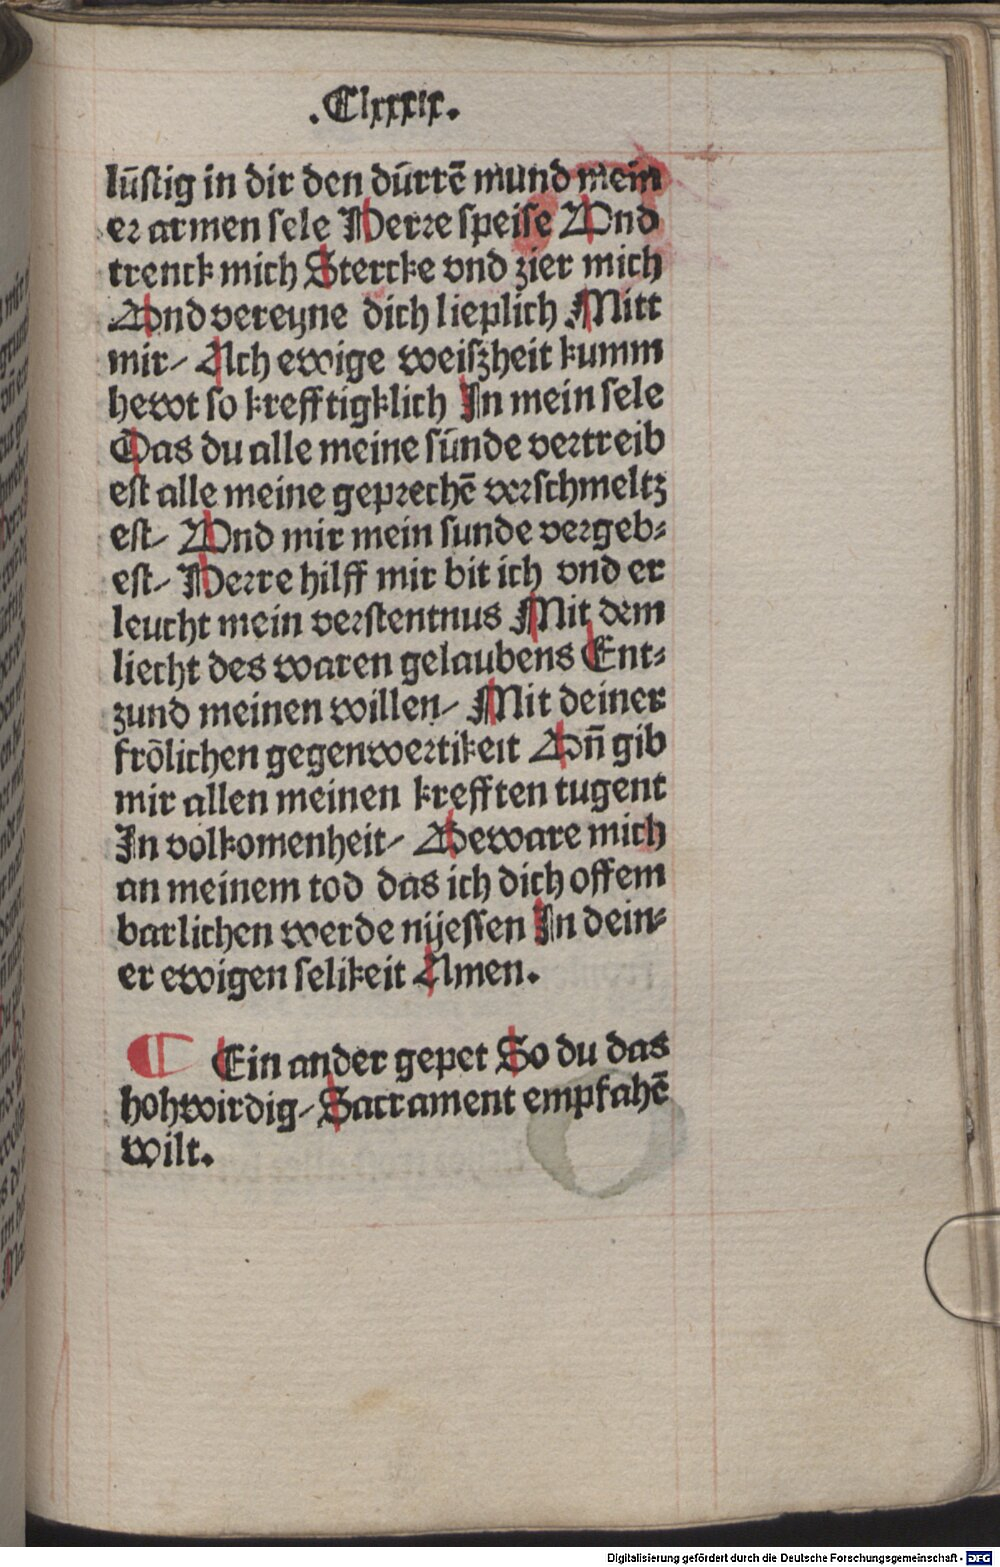 .Clxxxix.
lu̅stig in dir den du̅rre̅ mund mein
er armen sele Herre speise Vnd
trenck mich Stercke vnd zier mich
Vnd vereyne dich lieplich Mitt
mir⸗ Ach ewige weiszheit kumm
hewt so krefftigklich In mein sele
Das du alle meine su̅nde vertreib
est alle meine gepreche̅ verschmeltz
est⸗ Vnd mir mein sunde vergeb⸗
est⸗ Herre hilff mir bit ich vnd er
leucht mein verstentnus Mit dem
liecht des waren gelaubens Ent⸗
zund meinen willen⸗ Mit deiner
fro̅lichen gegenwertikeit Vn̅ gib
mir allen meinen krefften tugent
In volkomenheit⸗ Beware mich
an meinem tod das ich dich offem
barlichen werde nijessen In dein⸗
er ewigen selikeit Amen.
¶ Ein ander gepet So du das
hohwirdig⸗ Sacrament empfahe̅
wilt.
Digitalisierung gefördert durch die Deutsche Forschungsgemeinschaft - DFG